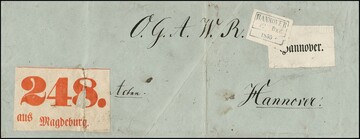 O. G. A. W. R.
HANNOVER
Hannover.
248.
aus Magdeburg.
Acten.
Hannover.